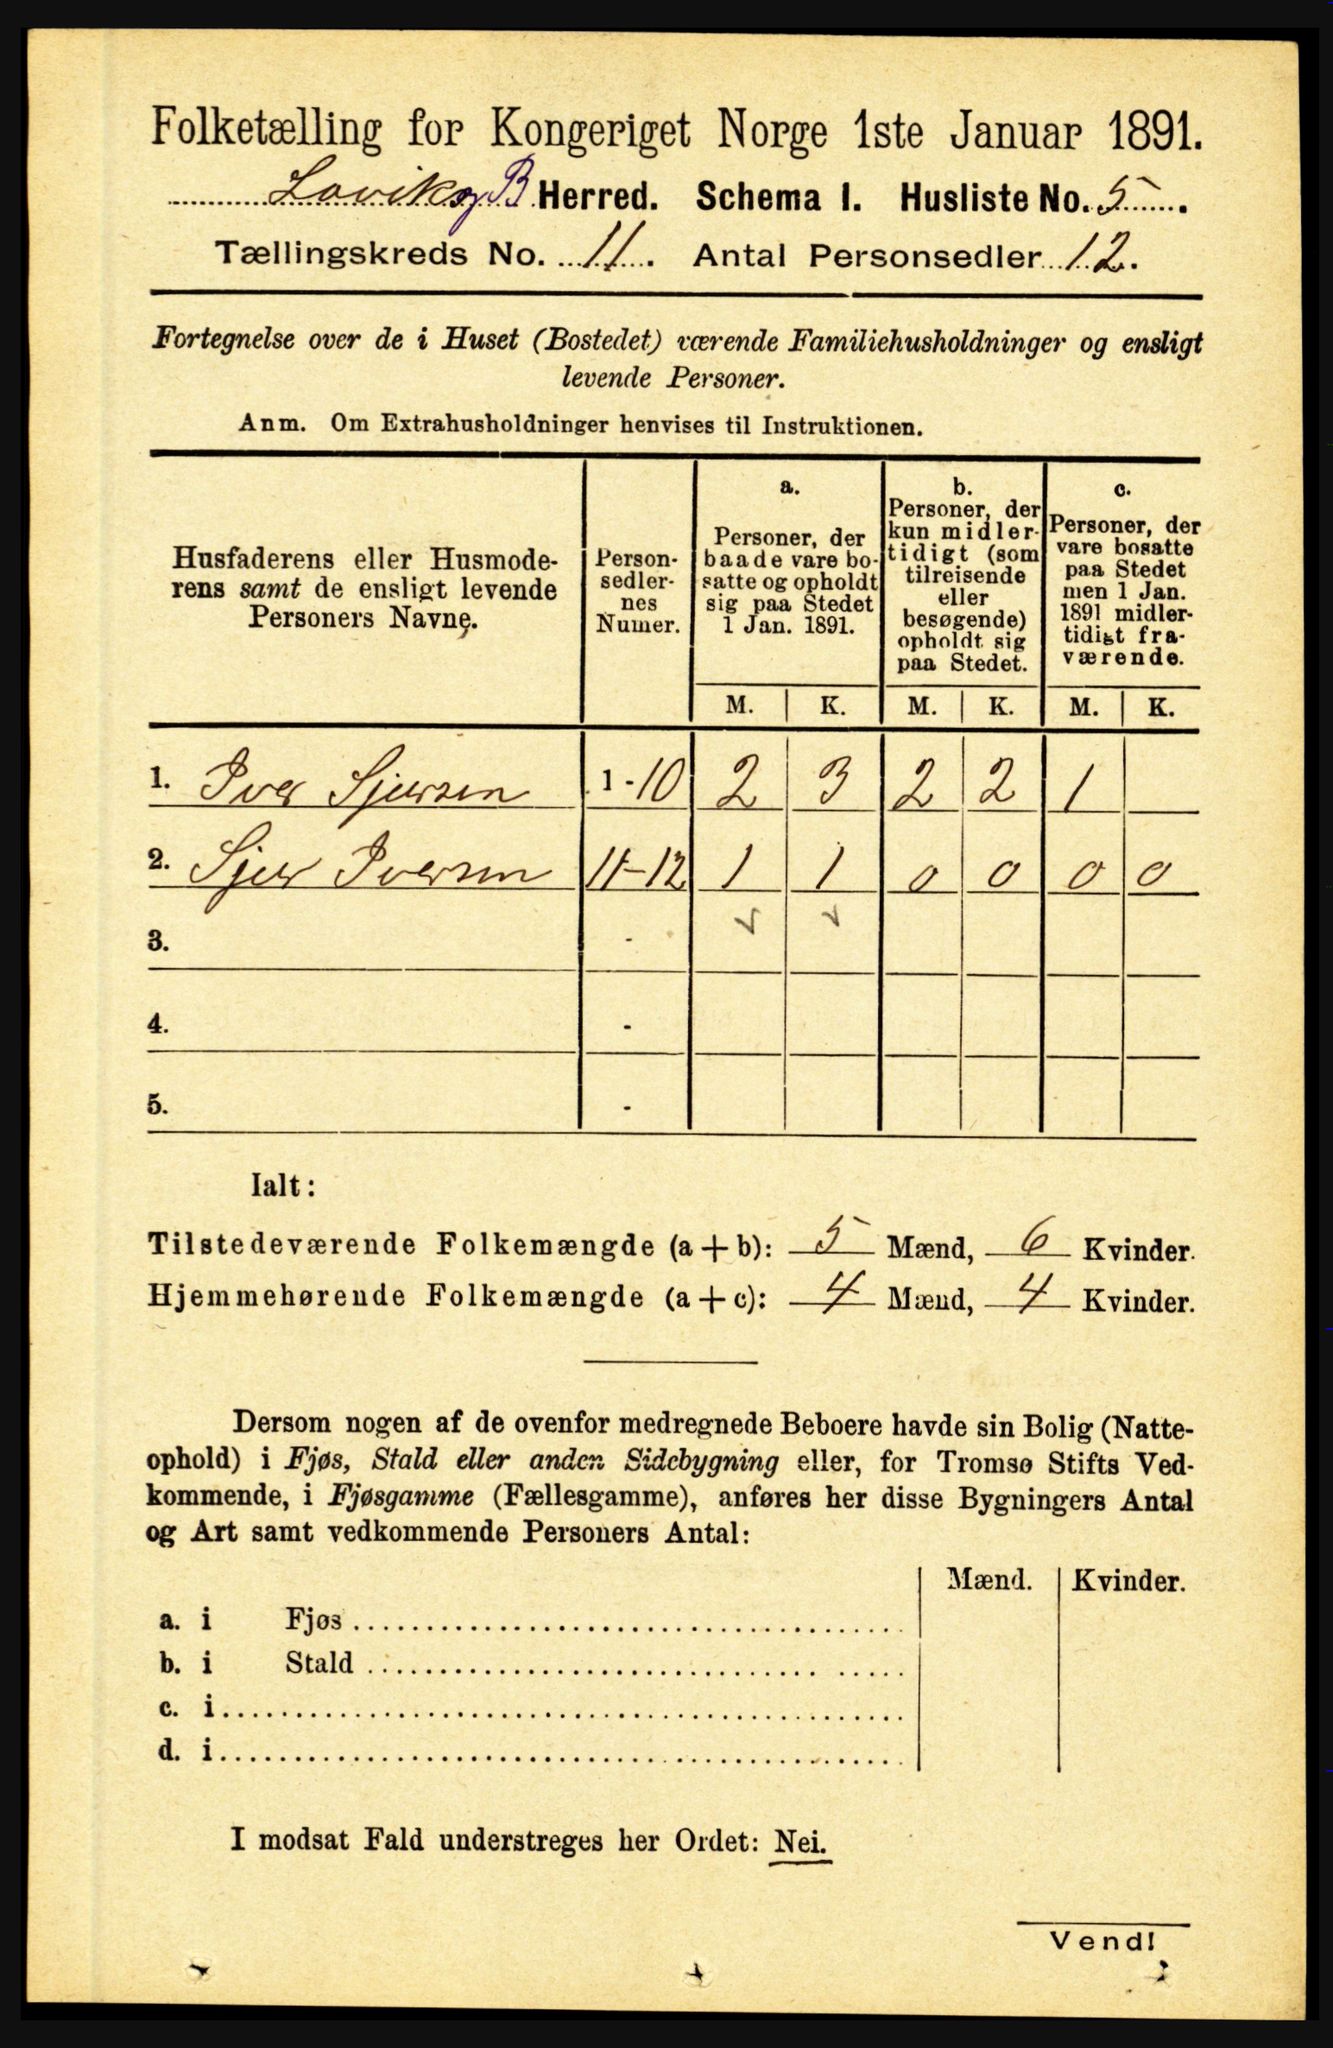 Folketælling for Kongeriget Norge 1ste Januar 1891.
Lavik og B Herred. Schema I. Husliste No. 5.
Tællingskreds No. 11. Antal Personsedler 12.
Fortegnelse over de i Huset (Bostedet) værende Familiehusholdninger og ensligt
levende Personer.
Anm. Om Extrahusholdninger henvises til Instruktionen.
Husfaderens eller Husmode-
rens samt de ensligt levende
Personers Navne.
Person-
sedler-
nes
Numer.
a.
Personer, der
baade vare bo-
satte og opholdt
sig paa Stedet
1 Jan. 1891.
b.
Personer, der
kun midler-
tidigt (som
tilreisende
eller
besøgende)
opholdt sig
paa Stedet.
c.
Personer, der
vare bosatte
paa Stedet
men 1 Jan.
1891 midler-
tidigt fra-
værende.
M. K. M. K. M. K.
1. Iver Sjursen 1-10 2 3 2 2 1
2. Sjur Iversen 11-12 1 1 0 0 0 0
3. -
4. -
5. -
Ialt:
Tilstedeværende Folkemængde (a + b): 5 Mænd, 6 Kvinder.
Hjemmehørende Folkemængde (a + c): 4 Mænd, 4 Kvinder.
Dersom nogen af de ovenfor medregnede Beboere havde sin Bolig (Natte-
ophold) i Fjøs, Stald eller anden Sidebygning eller, for Tromsø Stifts Ved-
kommende, i Fjøsgamme (Fællesgamme), anføres her disse Bygningers Antal
og Art samt vedkommende Personers Antal:
Mænd. Kvinder.
a. i Fjøs
b. i Stald
c. i
d. i
I modsat Fald understreges her Ordet: Nei.
Vend!